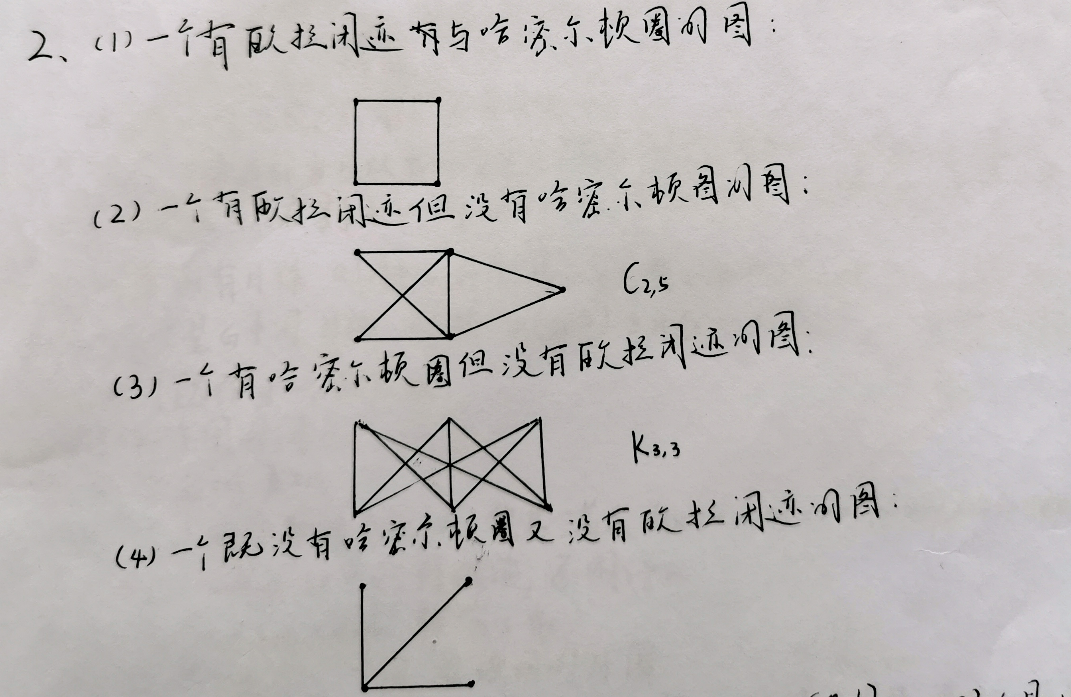 2、(1)一个有欧拉闭迹有与哈密尔顿圈的图：
(2)一个有欧拉闭迹但没有哈密尔顿圈的图：
C2,5
(3)一个有哈密尔顿圈但没有欧拉闭迹的图：
K3,3
(4)一个既没有哈密尔顿圈又没有欧拉闭迹的图：